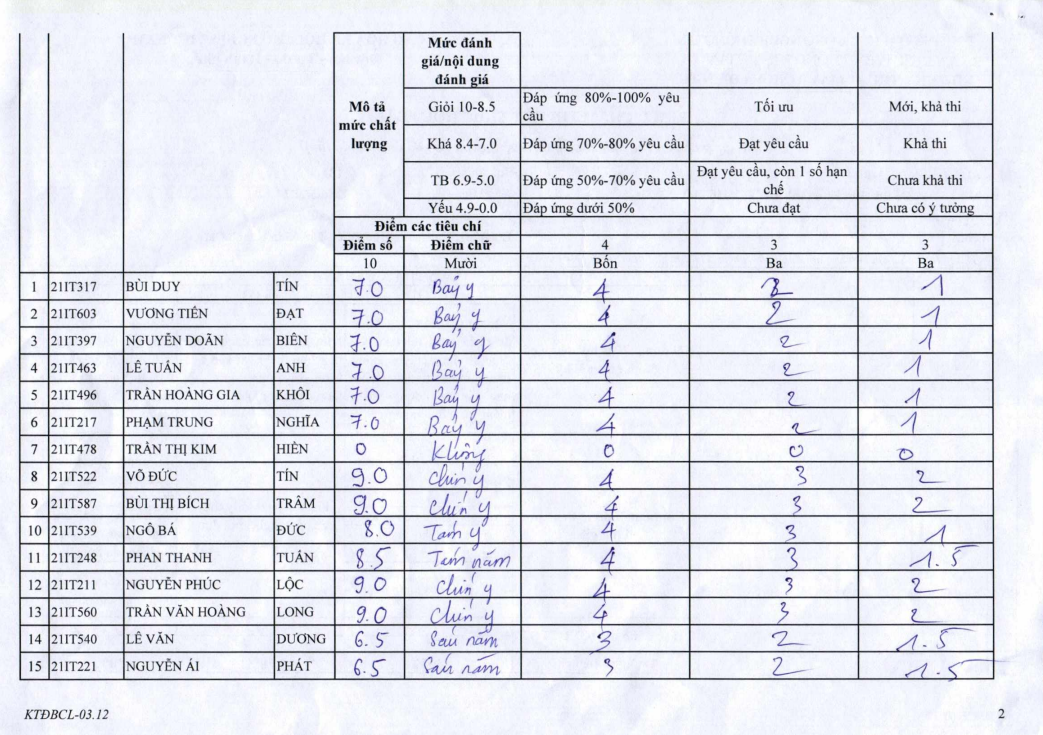 Mức đánh
giá/nội dung
đánh giá
Mô tả
mức chất
lượng
Giỏi 10-8.5 Đáp ứng 80%-100% yêu cầu Tối ưu Mới, khả thi
Khá 8.4-7.0 Đáp ứng 70%-80% yêu cầu Đạt yêu cầu Khả thi
TB 6.9-5.0 Đáp ứng 50%-70% yêu cầu Đạt yêu cầu, còn 1 số hạn chế Chưa khả thi
Yếu 4.9-0.0 Đáp ứng dưới 50% Chưa đạt Chưa có ý tưởng
Điểm các tiêu chí
Điểm số Điểm chữ 4 3 3
10 Mười Bốn Ba Ba
1 21IT317 BÙI DUY TÍN 7.0 Bảy y 4 2 1
2 21IT603 VƯƠNG TIẾN ĐẠT 7.0 Bảy y 4 2 1
3 21IT397 NGUYỄN DOÃN BIÊN 7.0 Bảy y 4 2 1
4 21IT463 LÊ TUẤN ANH 7.0 Bảy y 4 2 1
5 21IT496 TRẦN HOÀNG GIA KHÔI 7.0 Bảy y 4 2 1
6 21IT217 PHẠM TRUNG NGHĨA 7.0 Bảy y 4 2 1
7 21IT478 TRẦN THỊ KIM HIỀN 0 Không 0 0 0
8 21IT522 VÕ ĐỨC TÍN 9.0 Chín y 4 3 2
9 21IT587 BÙI THỊ BÍCH TRÂM 9.0 Chín y 4 3 2
10 21IT539 NGÔ BÁ ĐỨC 8.0 Tám y 4 3 1
11 21IT248 PHAN THANH TUẤN 8.5 Tám năm 4 3 1.5
12 21IT211 NGUYỄN PHÚC LỘC 9.0 Chín y 4 3 2
13 21IT560 TRẦN VĂN HOÀNG LONG 9.0 Chín y 4 3 2
14 21IT540 LÊ VĂN DƯƠNG 6.5 Sáu năm 3 2 1.5
15 21IT221 NGUYỄN ÁI PHÁT 6.5 Sáu năm 3 2 1.5
KTĐBCL-03.12 2